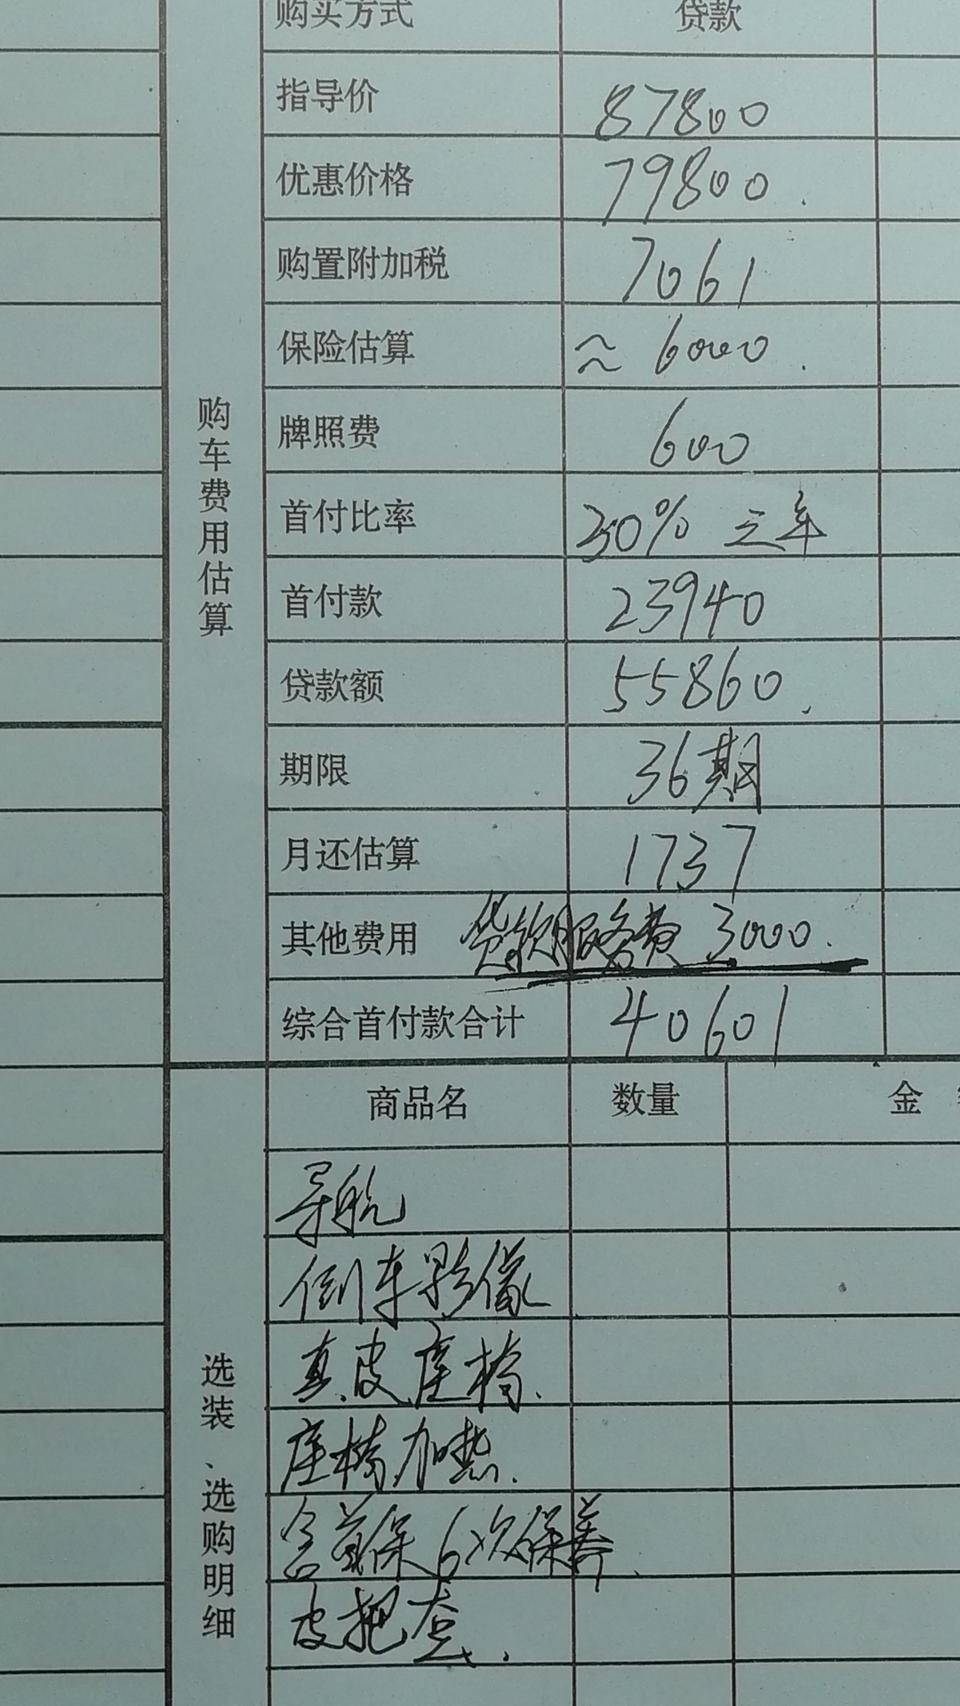 购买方式 贷款
指导价 87800
优惠价格 79800.
购置附加税 7061
保险估算 ≈ 6000.
牌照费 600
首付比率 30% 三年
首付款 23940
贷款额 55860.
期限 36期
月还估算 1737
其他费用 贷款服务费 3000.
综合首付款合计 40601
购车费用估算
商品名 数量 金
导航
倒车影像
真皮座椅.
座椅加热.
含首保6次保养.
皮把套.
选装、选购明细